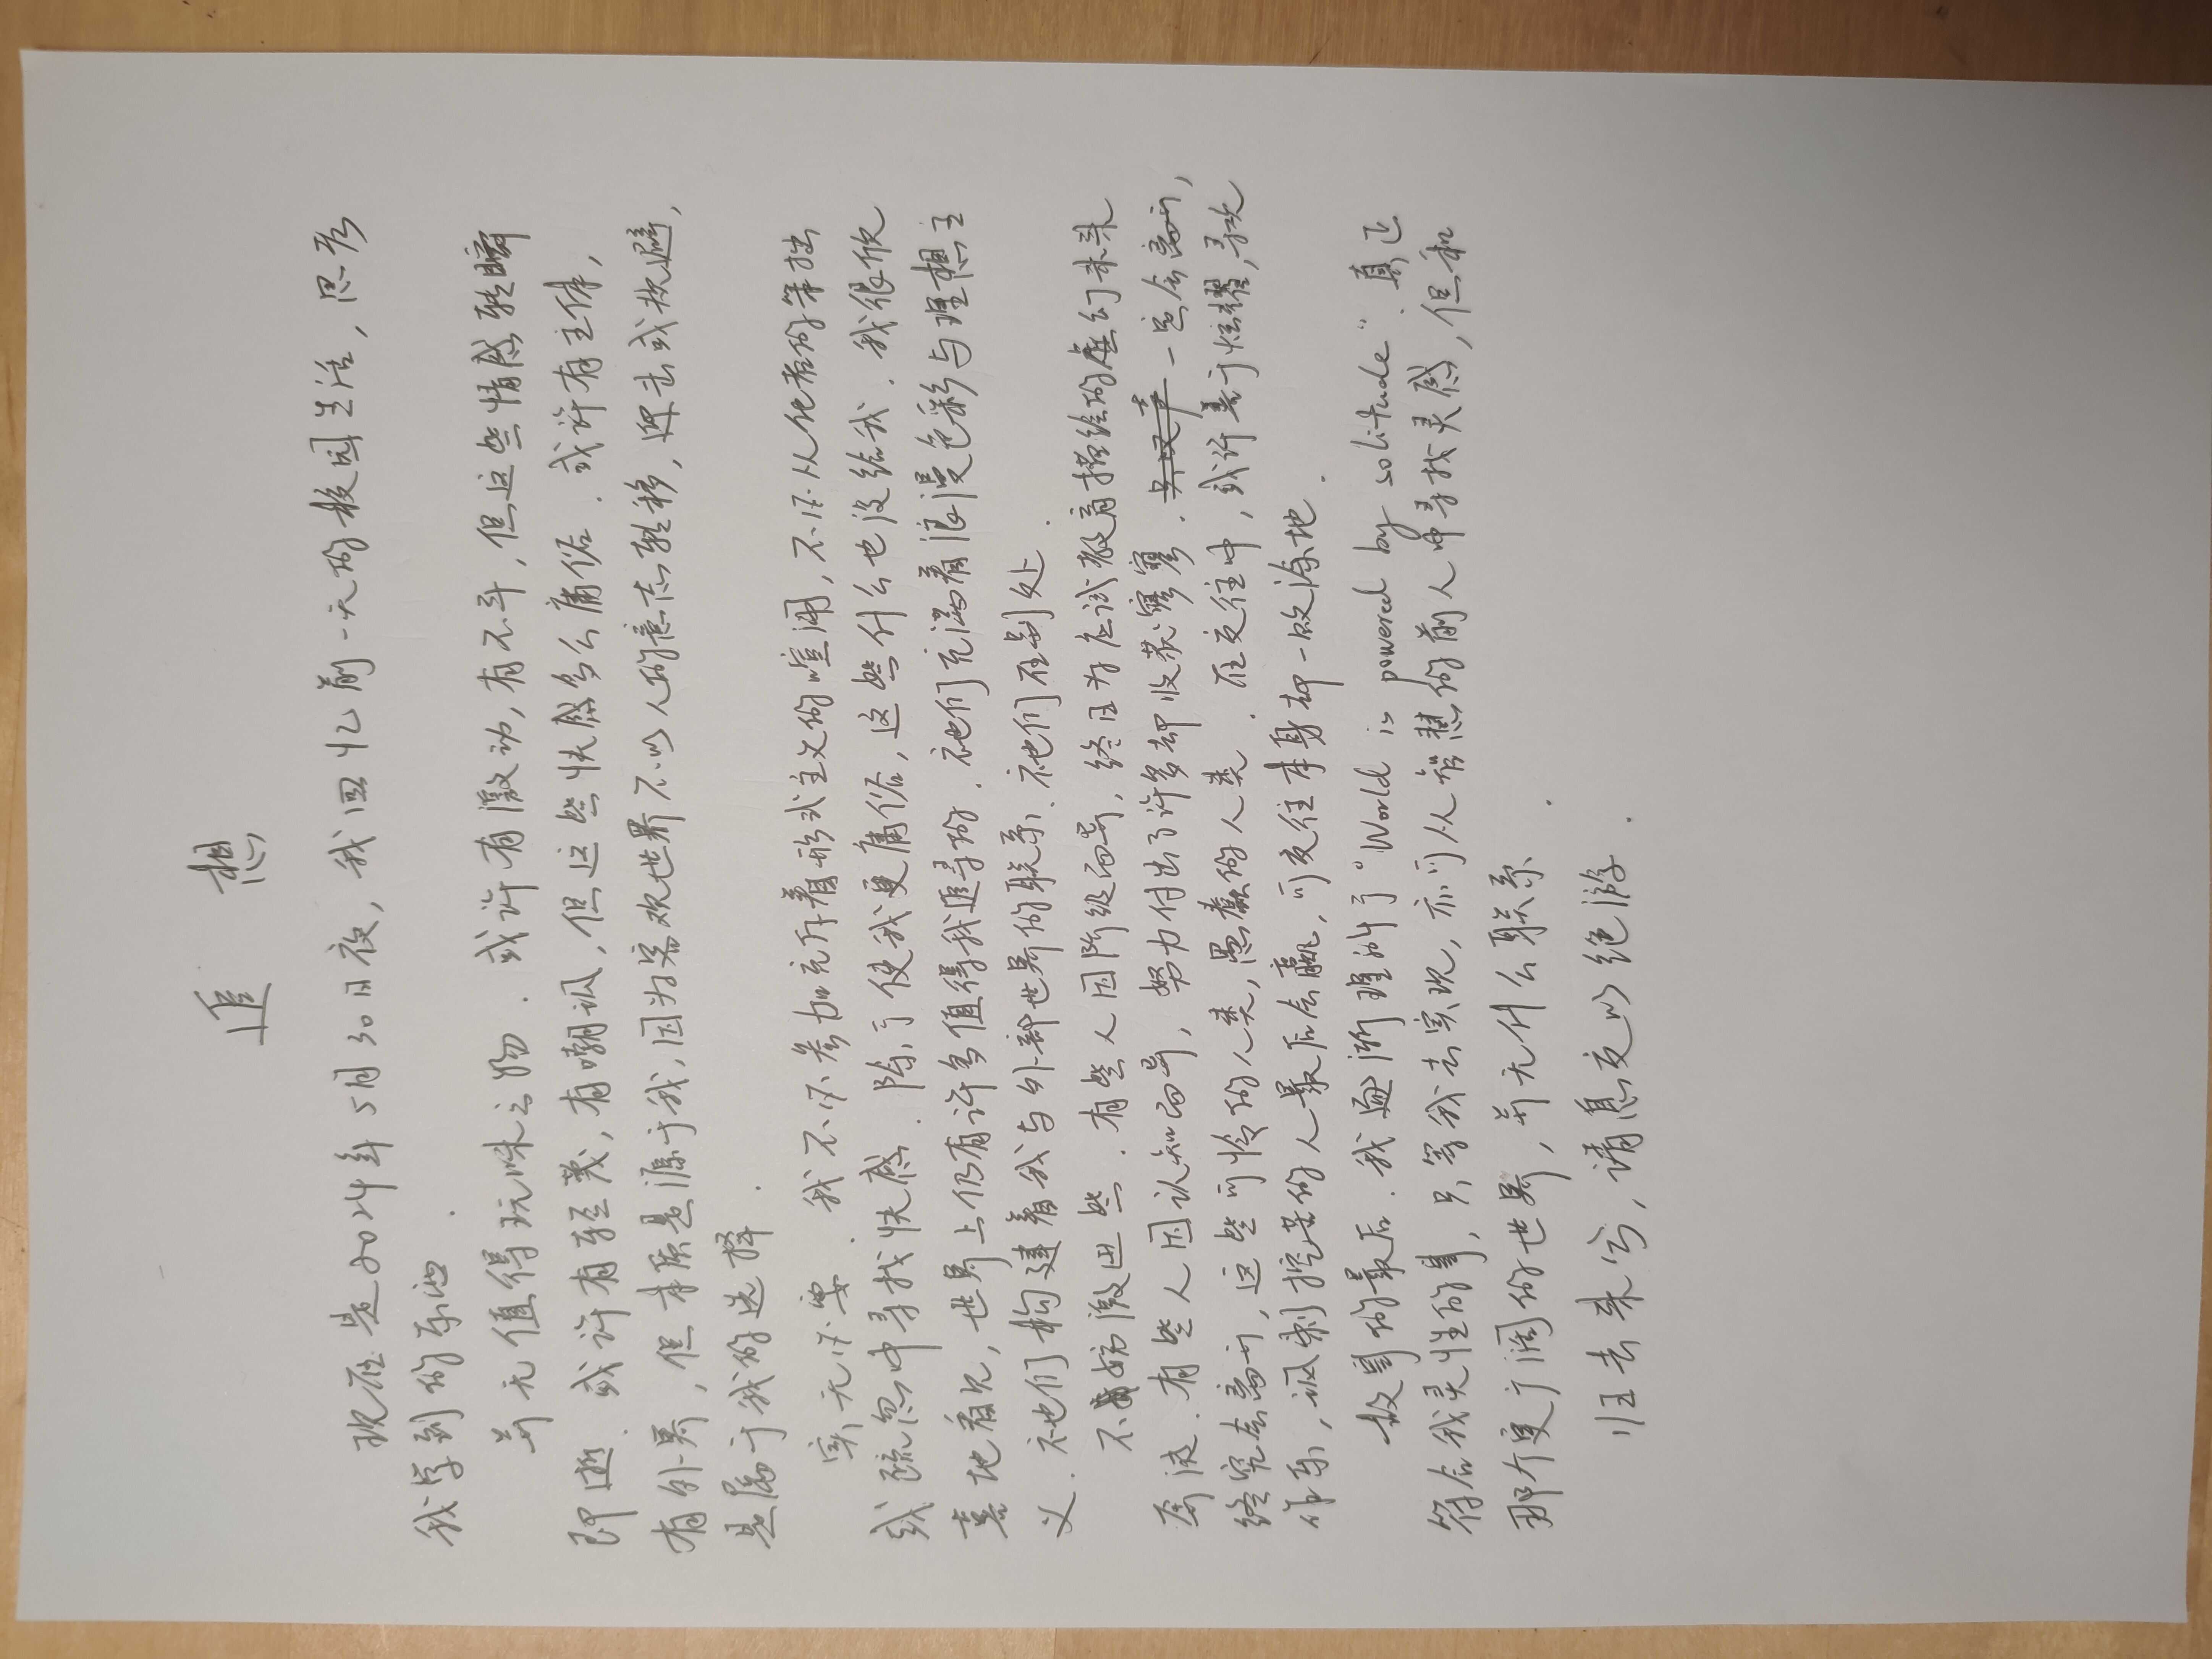 追 想
现在是2024年5月30日夜，我回忆前一天的校园生活，思考
我学到的东西．
并无值得玩味之物．或许有激动，有不平，但这些情感转瞬
即逝．或许有轻蔑，有嘲讽，但这些快感多么庸俗．或许有主体，
有外界，但本质是源于我，因为客观世界不以人的意志转移，迎击或规避，
是属于我的选择．
实无必要．我不必参加充斥着形式主义的喧闹，不必从他者的笨拙
或疏忽中寻找快感．除了使我更庸俗，这些什么也没给我．我很欣
喜地看见，世界上仍有许多值得我追寻的．祂们充满着浪漫色彩与理想主
义．祂们构建着我与外部世界的联系．祂们在别处．
不妨激进些．有些人因阶级而异，终日为应试教育描绘的虚幻未来
奔波．有些人因认知而异，努力付出了许多却收获寥寥．一定会离开，
终究会离开，这些可怜的人类，愚蠢的人类．在交往中，或许善于炫耀，寻欢
作乐，讽刺挖苦的人最后会赢，可交往本身却一败涂地．
故事的最后．我逐渐理解了“World is powered by solitude”．真正
符合我灵性的事，只等我去实现，亦可从智慧的前人中寻找灵感，但和
那个更广阔的世界，并无什么联系．
归去来兮，请息交以绝游．